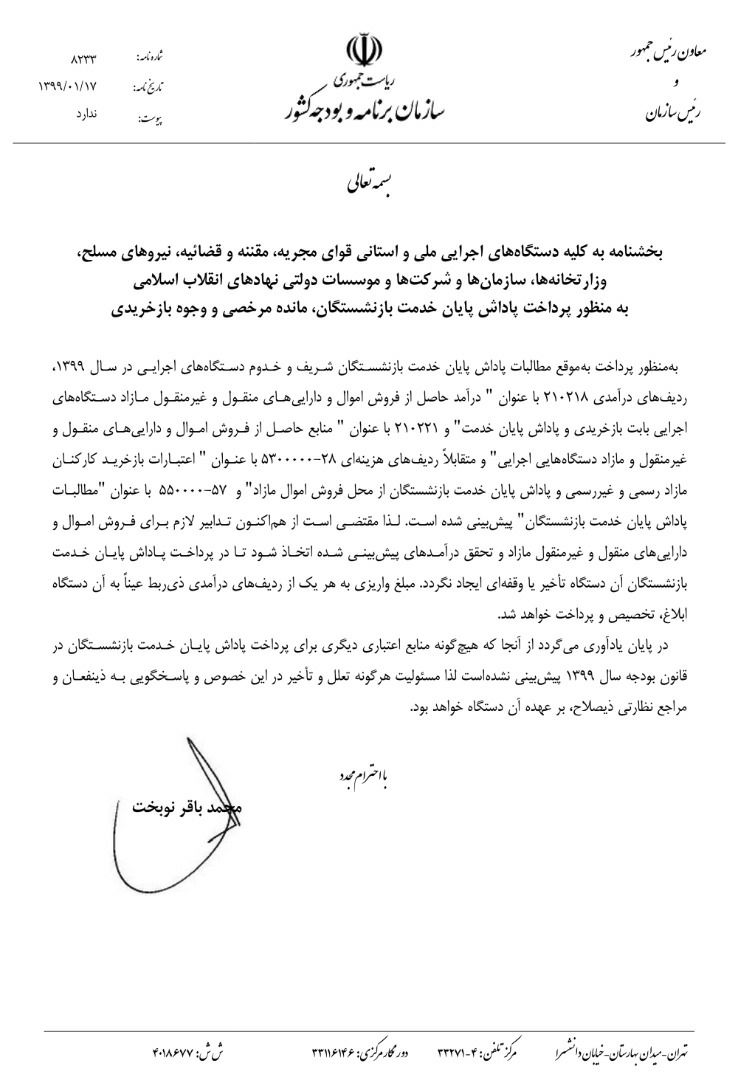 معاون رئیس جمهور
و
رئیس سازمان
ریاست جمهوری
سازمان برنامه و بودجه کشور
شماره نامه: ۸۲۳۳
تاریخ نامه: ۱۳۹۹/۰۱/۱۷
پیوست: ندارد
بسمه تعالی
بخشنامه به کلیه دستگاه‌های اجرایی ملی و استانی قوای مجریه، مقننه و قضائیه، نیروهای مسلح،
وزارتخانه‌ها، سازمان‌ها و شرکت‌ها و موسسات دولتی نهادهای انقلاب اسلامی
به منظور پرداخت پاداش پایان خدمت بازنشستگان، مانده مرخصی و وجوه بازخریدی
به‌منظور پرداخت به‌موقع مطالبات پاداش پایان خدمت بازنشستگان شریف و خدوم دستگاه‌های اجرایی در سال ۱۳۹۹،
ردیف‌های درآمدی ۲۱۰۲۱۸ با عنوان " درآمد حاصل از فروش اموال و دارایی‌های منقول و غیرمنقول مازاد دستگاه‌های
اجرایی بابت بازخریدی و پاداش پایان خدمت" و ۲۱۰۲۲۱ با عنوان " منابع حاصل از فروش اموال و دارایی‌های منقول و
غیرمنقول و مازاد دستگاه‌هایی اجرایی" و متقابلاً ردیف‌های هزینه‌ای ۲۸-۵۳۰۰۰۰۰ با عنوان " اعتبارات بازخرید کارکنان
مازاد رسمی و غیررسمی و پاداش پایان خدمت بازنشستگان از محل فروش اموال مازاد" و ۵۷-۵۵۰۰۰۰ با عنوان "مطالبات
پاداش پایان خدمت بازنشستگان" پیش‌بینی شده است. لذا مقتضی است از هم‌اکنون تدابیر لازم برای فروش اموال و
دارایی‌های منقول و غیرمنقول مازاد و تحقق درآمدهای پیش‌بینی شده اتخاذ شود تا در پرداخت پاداش پایان خدمت
بازنشستگان آن دستگاه تأخیر یا وقفه‌ای ایجاد نگردد. مبلغ واریزی به هر یک از ردیف‌های درآمدی ذی‌ربط عیناً به آن دستگاه
ابلاغ، تخصیص و پرداخت خواهد شد.
در پایان یادآوری می‌گردد از آنجا که هیچ‌گونه منابع اعتباری دیگری برای پرداخت پاداش پایان خدمت بازنشستگان در
قانون بودجه سال ۱۳۹۹ پیش‌بینی نشده‌است لذا مسئولیت هرگونه تعلل و تأخیر در این خصوص و پاسخگویی به ذینفعان و
مراجع نظارتی ذیصلاح، بر عهده آن دستگاه خواهد بود.
با احترام مجدد
محمد باقر نوبخت
تهران-میدان بهارستان-خیابان دانشسرا مرکز تلفن: ۴-۳۳۲۷۱ دورنگار مرکزی: ۳۳۱۱۶۱۴۶ ش ش: ۴۰۱۸۶۷۷